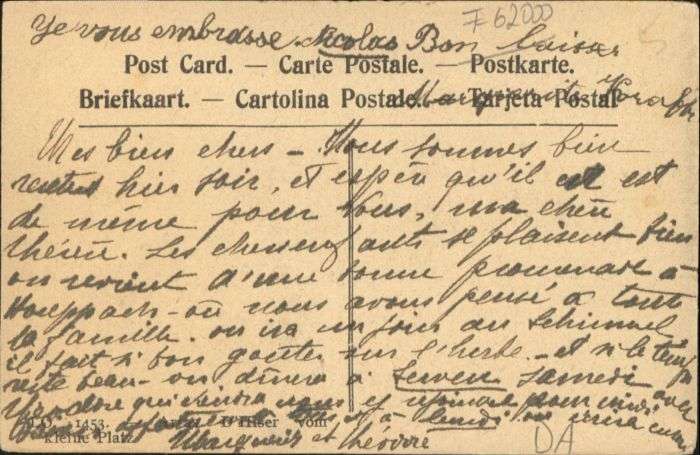 F 62000
Je vous embrasse Nicolas Bon baiser
Post Card. — Carte Postale. — Postkarte.
Marguerite
Briefkaart. — Cartolina Postale. — Tarjeta Postal
Mes bien chers — Nous sommes bien
rentrés hier soir, et espère qu'il est
de même pour vous, ma chère
Les chers enfants se plaisent bien
on revient d'une bonne promenade à
où nous avons pensé à toute
la famille. on ira un jour au Schimmel
il fait si bon goûter sur l'herbe — et si le temps
reste beau — on dînera à Serven samedi avec
Théodore qui viendra nous y rejoindre pour midi
à lundi on
1453. D'Hiser vom
kleine Platz
Marguerite et Théodore
DA